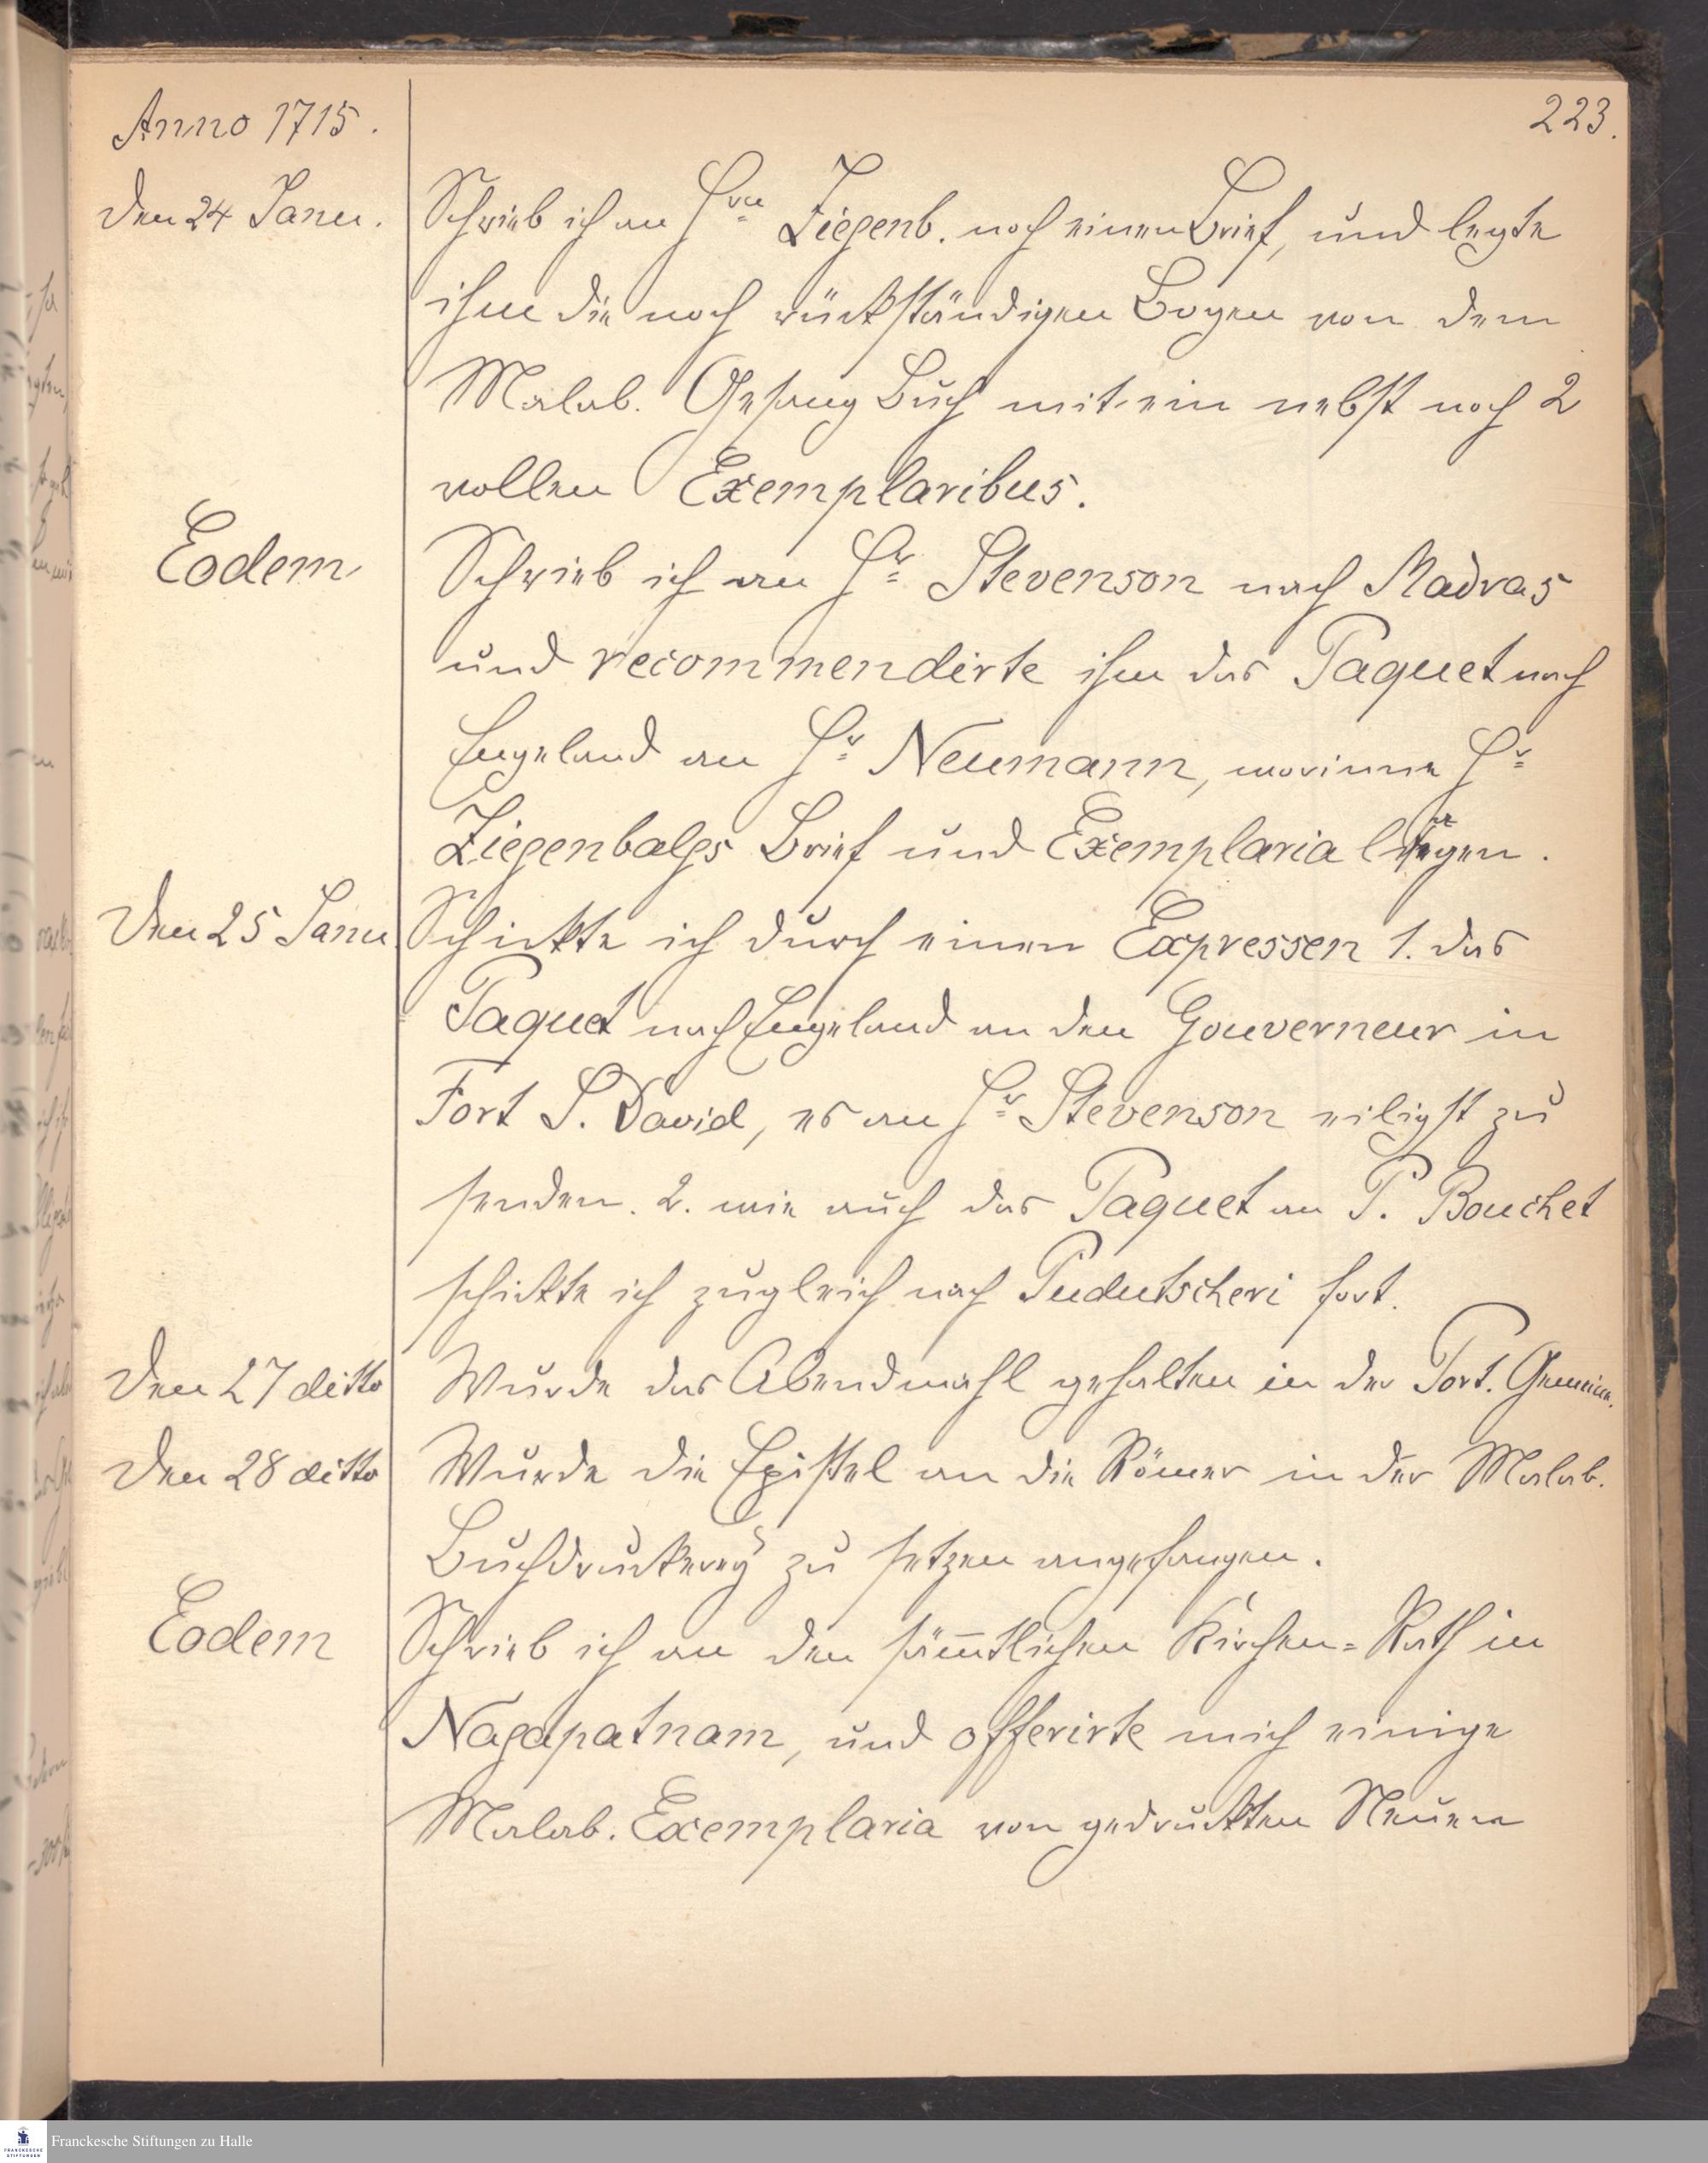 Anno 1715.
223.
Den 24 Janu.
Schrieb ich an Hrn Ziegenb. noch einen Brief, und legte
ihm die noch rückständigen Bogen von dem
Malab. Gesang Buch mit ein nebst noch 2
vollen Exemplaribus.
Eodem
Schrieb ich an Hr Stevenson nach Madras
und recommendirte ihm das Paquet nach
Engeland an Hr Neumann, worinne Hr
Ziegenbalgs Brief und Exemplaria liegen.
Den 25 Janu.
Schickte ich durch einen Expressen 1. das
Paquet nach Engeland an den Gouverneur in
Fort S. David, es an Hr Stevenson eiligst zu
senden. 2. wie auch das Paquet an P. Bouchet
schickte ich zugleich nach Pudutscheri fort.
Den 27 ditto
Wurde das Abendmahl gehalten in der Port. Gemeine.
Den 28 ditto
Wurde die Epistel an die Römer in der Malab.
Buchdruckerey zu setzen angefangen.
Eodem
Schrieb ich an den sämtlichen Kirchen=Rath in
Nagapatnam, und offerirte mich einige
Malab. Exemplaria von gedruckten Neuen
FRANCKESCHE STIFTUNGEN
Franckesche Stiftungen zu Halle